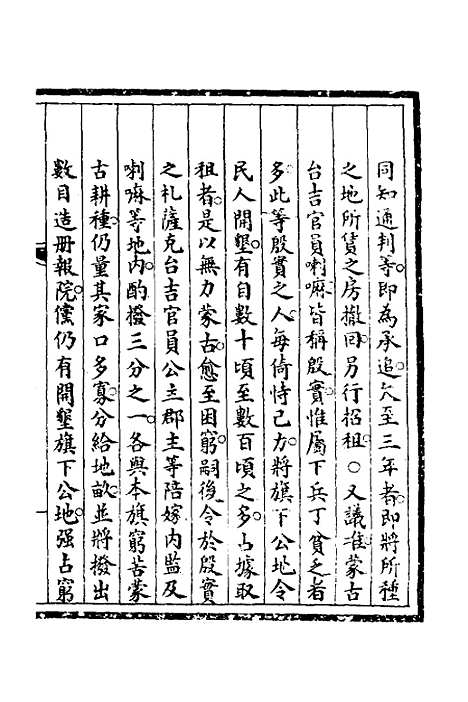 同知通判等即為承追欠至三年者即將所種
之地所賃之房撤回另行招租○又議准蒙古
台吉官員喇嘛皆稱殷實惟屬下兵丁貧乏者
多此等殷實之人每倚恃己力將旗下公地令
民人開墾有自數十頃至數百頃之多占據取
租者是以無力蒙古愈至困窮嗣後令於殷實
之札薩克台吉官員公主郡主等陪嫁內監及
喇嘛等地內酌撥三分之一各與本旗窮苦蒙
古耕種仍量其家口多寡分給地畝並將撥出
數目造冊報院儻仍有開墾旗下公地强占窮